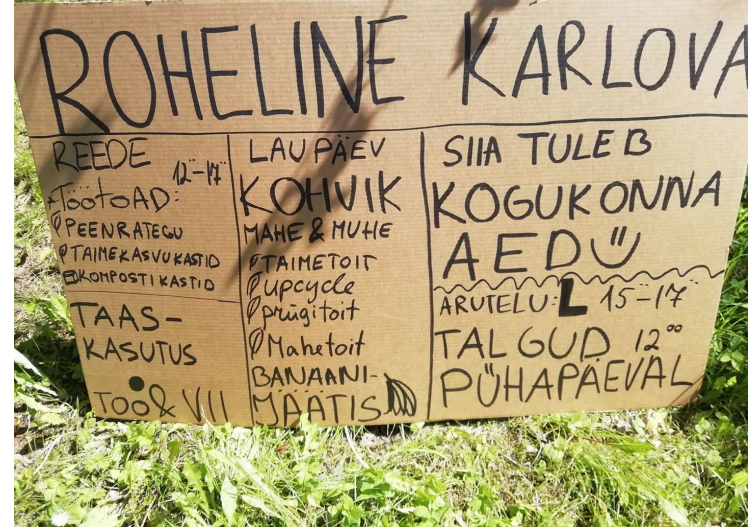 ROHELINE KARLOVA
REEDE
12-17
TÖÖTOAD:
PEENRATEGU
TAIMEKASVUKASTID
KOMPOSTIKASTID
TAAS-
KASUTUS
TOO & VII
LAUPÄEV
KOHVIK
MAHE & MUHE
TAIMETOIT
upcycle
prügitoit
Mahetoit
BANAANI-
JÄÄTIS
SIIA TULEB
KOGUKONNA
AED
ARUTELU: L 15-17
TALGUD 12°°
PÜHAPÄEVAL